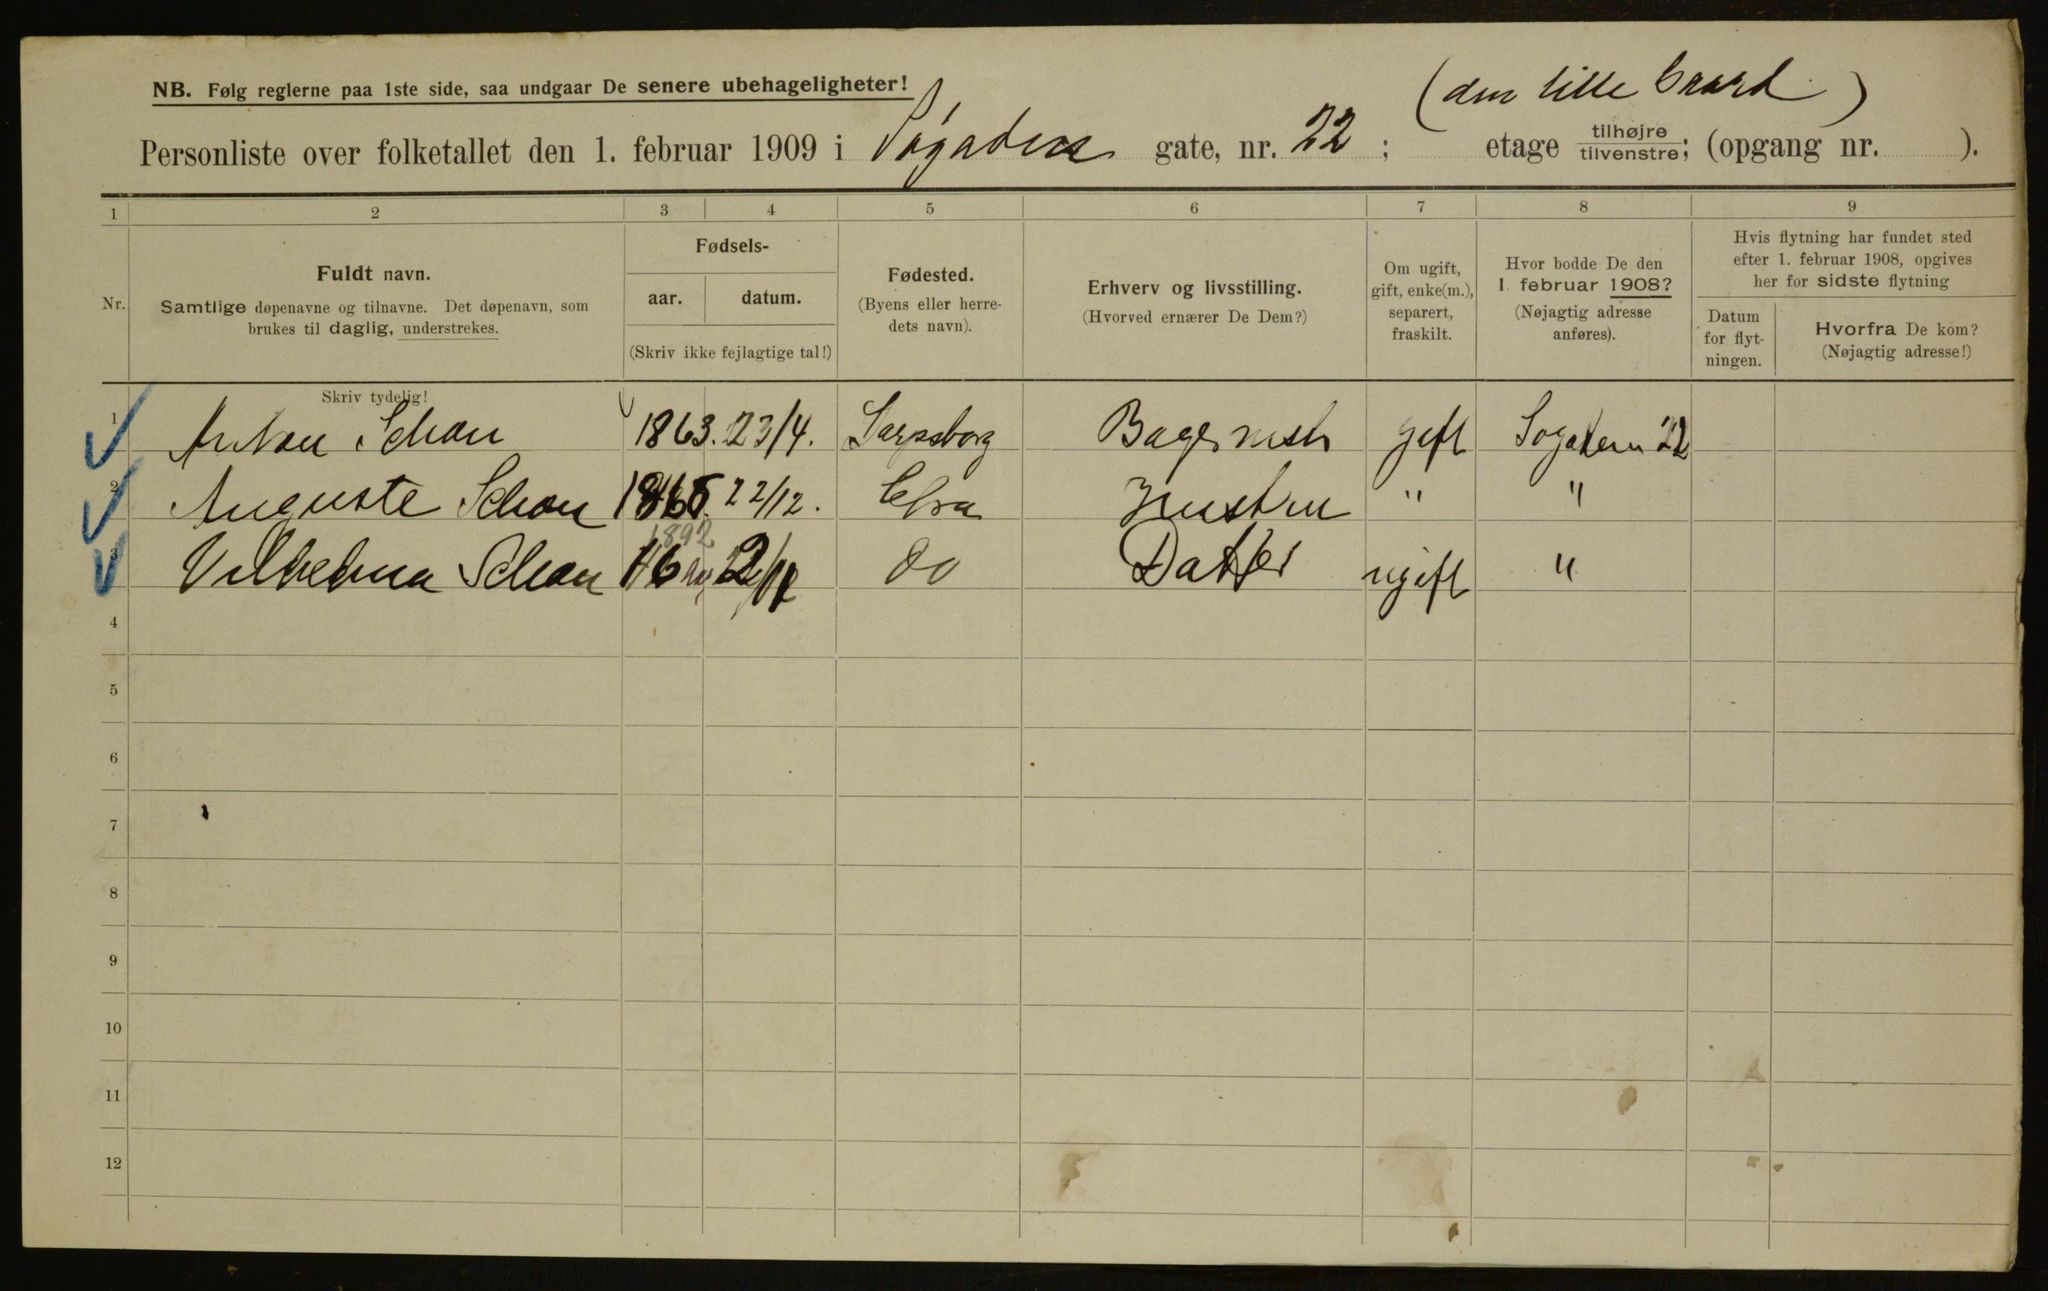 NB. Følg reglerne paa 1ste side, saa undgaar De senere ubehageligheter!
(den lille Gaard)
Personliste over folketallet den 1. februar 1909 i Søgadens gate, nr. 22; etage tilhøjre/tilvenstre; (opgang nr. ).
1 2 3 4 5 6 7 8 9
Nr.
Fuldt navn.
Samtlige døpenavne og tilnavne. Det døpenavn, som
brukes til daglig, understrekes.
Fødsels-
aar. datum.
(Skriv ikke fejlagtige tal!)
Fødested.
(Byens eller herre-
dets navn).
Erhverv og livsstilling.
(Hvorved ernærer De Dem?)
Om ugift,
gift, enke(m.),
separert,
fraskilt.
Hvor bodde De den
1. februar 1908?
(Nøjagtig adresse
anføres).
Hvis flytning har fundet sted
efter 1. februar 1908, opgives
her for sidste flytning
Datum
for flyt-
ningen.
Hvorfra De kom?
(Nøjagtig adresse!)
Skriv tydelig!
1 Anton Schou 1863. 23/4. Sarpsborg Bagermstr gift Sogaden 22
2 Auguste Schou 1865. 22/12. Chra Hustru " "
1892
3 Vilhelma Schou 16 2/12 do Datter ugift "
4
5
6
7
8
9
10
11
12